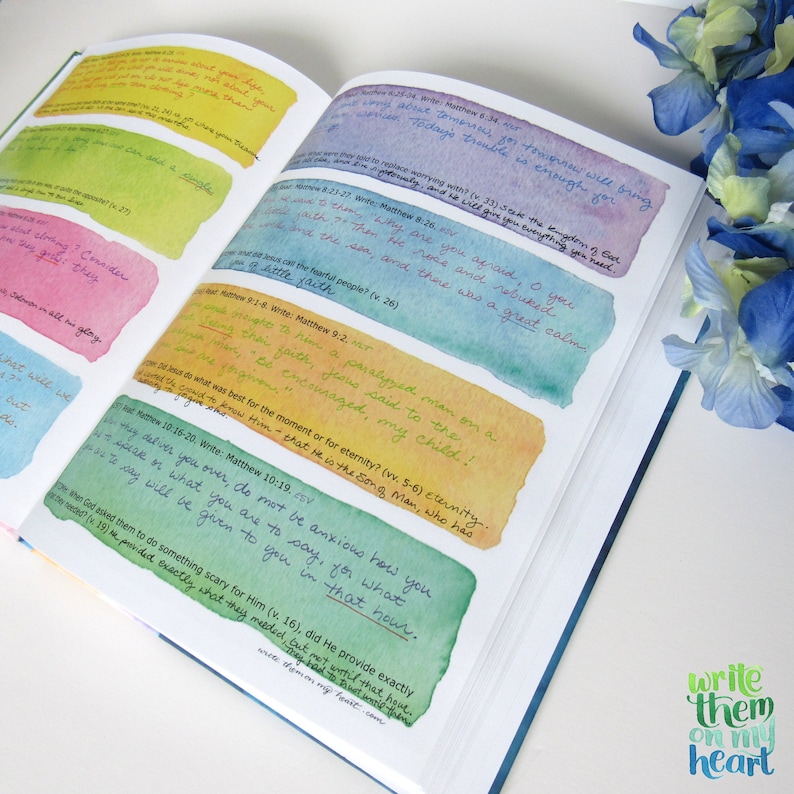 Write: Matthew 6:25.
not be anxious about your life,
nor about your
life more than
clothing?
at the same time? (vv. 21, 24)
can add a single
or quite the opposite? (v. 27)
about clothing? Consider
grow: they
Solomon in all his glory.
what will we
but
Read: Matthew 6:25-34. Write: Matthew 6:34. NLT
worry about tomorrow, for tomorrow will bring
worries. Today's trouble is enough for
What were they told to replace worrying with? (v. 33) Seek the Kingdom of God
above all else, and live righteously, and He will give you everything you need.
Read: Matthew 8:23-27. Write: Matthew 8:26.
He said to them, "Why are you afraid, O you
of little faith?" Then He rose and rebuked
the winds and the sea, and there was a great calm.
What did Jesus call the fearful people? (v. 26)
you of little faith
Read: Matthew 9:1-8. Write: Matthew 9:2. NLT
brought to him a paralyzed man on a
Seeing their faith, Jesus said to the
paralyzed man, "Be encouraged, my child!
are forgiven."
Did Jesus do what was best for the moment or for eternity? (vv. 5-6) Eternity.
He wanted the crowd to know Him - that He is the Son of Man, who has
authority to forgive sins.
Read: Matthew 10:16-20. Write: Matthew 10:19. ESV
When they deliver you over, do not be anxious how you
are to speak or what you are to say, for what
you are to say will be given to you in that hour.
When God asked them to do something scary for Him (v. 16), did He provide exactly
what they needed? (v. 19) He provided exactly what they needed, but not until that hour.
They had to trust until then.
writethemonmyheart.com
write
them
on my
heart